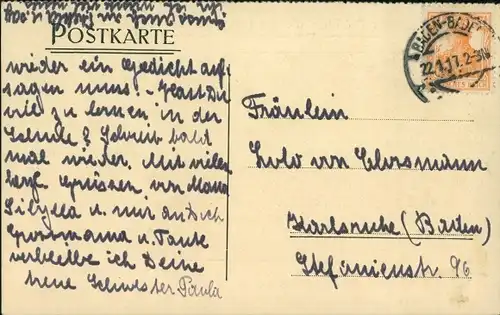 POSTKARTE
BADEN-BADEN
22.1.17. 2-3N
wieder ein Gedicht auf-
sagen muss! - Hast Du
viel zu lernen in der
Schule? Schreib bald
mal wieder. Mit vielen
herzl. Grüssen von Mama
Sibylla u. mir an Dich
Grossmama u. Tante
verbleibe ich Deine
treue Schwester Paula
Fräulein
Lolo von
Karlsruhe (Baden)
Stefanienstr. 96